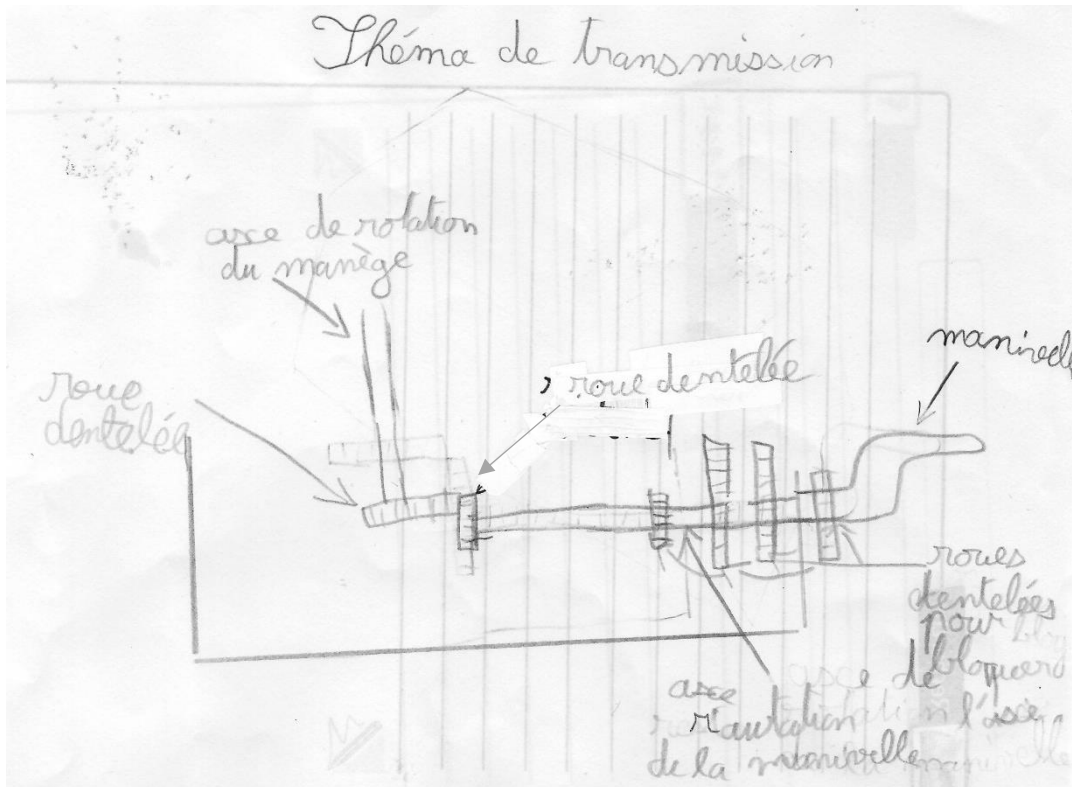 Théma de transmission
axe de rotation
du manège
manivelle
roue dentelée
roue
dentelée
roues
dentelées
pour
bloquer
l'axe
axe de
rautation
de la manivelle